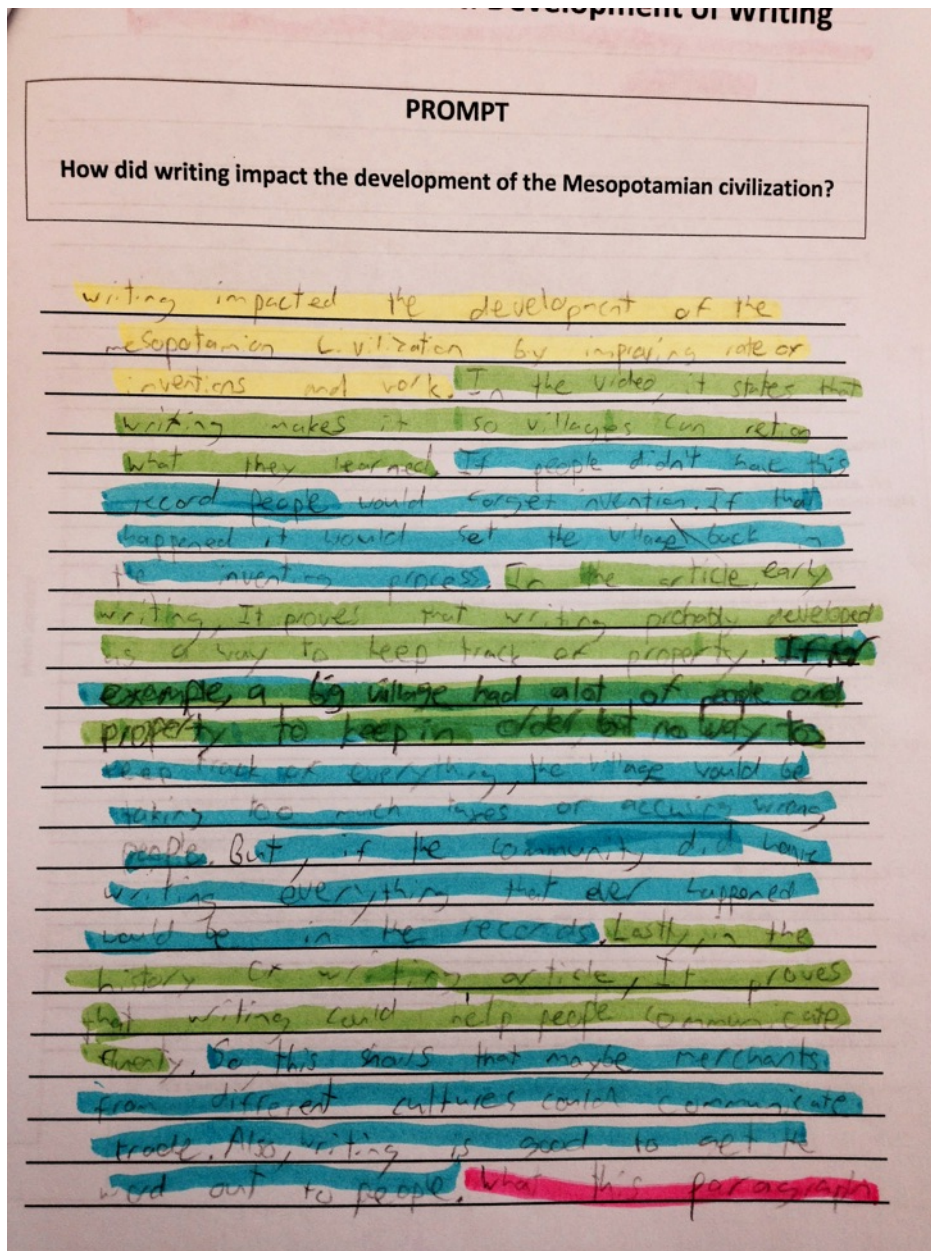 Development of Writing
PROMPT
How did writing impact the development of the Mesopotamian civilization?
writing impacted the development of the
mesopotamian Civilization by improving rate or
inventions and work. In the video, it states that
writing makes it so villages can retian
what they learned. If people didn't have this
record people would forget invention. If that
happened it would set the village back in
the inventing process. In the article, early
writing, It proves that writing probably developed
as a way to keep track of property. If for
example, a big village had alot of people and
property to keep in order but no way to
keep track of everything, the village would be
taking too much taxes or accusing wrong
people. But, if the community did have
writing everything that ever happened
would be in the records. Lastly, in the
history of writing article, It proves
that writing could help people communicate
So this shows that maybe merchants
from different cultures could communicate
trade. Also, writing is good to get the
word out to people. What this paragraph